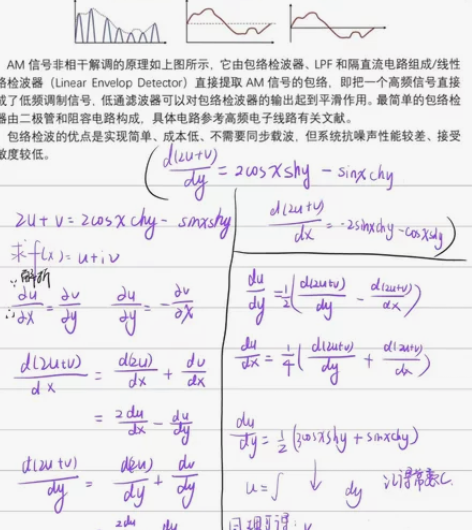 AM 信号非相干解调的原理如上图所示，它由包络检波器、LPF 和隔直流电路组成/线性
络检波器（Linear Envelop Detector）直接提取 AM 信号的包络，即把一个高频信号直接
成了低频调制信号，低通滤波器可以对包络检波器的输出起到平滑作用。最简单的包络检
器由二极管和阻容电路构成，具体电路参考高频电子线路有关文献。
包络检波的优点是实现简单、成本低、不需要同步载波，但系统抗噪声性能较差、接受
敏度较低。
( d(2u+v)/dy = 2cosxshy - sinxchy
d(2u+v)/dx = -2sinxchy - cosxshy )
2u+v = 2cosxchy - sinxshy
求f(x) = u+iv
∵解析
∴ ∂u/∂x = ∂v/∂y ∂u/∂y = -∂v/∂x
d(2u+v)/dx = d(2u)/dx + dv/dx
= 2du/dx - du/dy
d(2u+v)/dy = d(2u)/dy + dv/dy
2du dy
du/dy = 1/2( d(2u+v)/dy - d(2u+v)/dx )
du/dx = 1/4( d(2u+v)/dy + d(2u+v)/dx )
du/dy = 1/2(3cosxshy + sinxchy)
u = ∫ ↓ dy 记得常数C.
同理可得: v